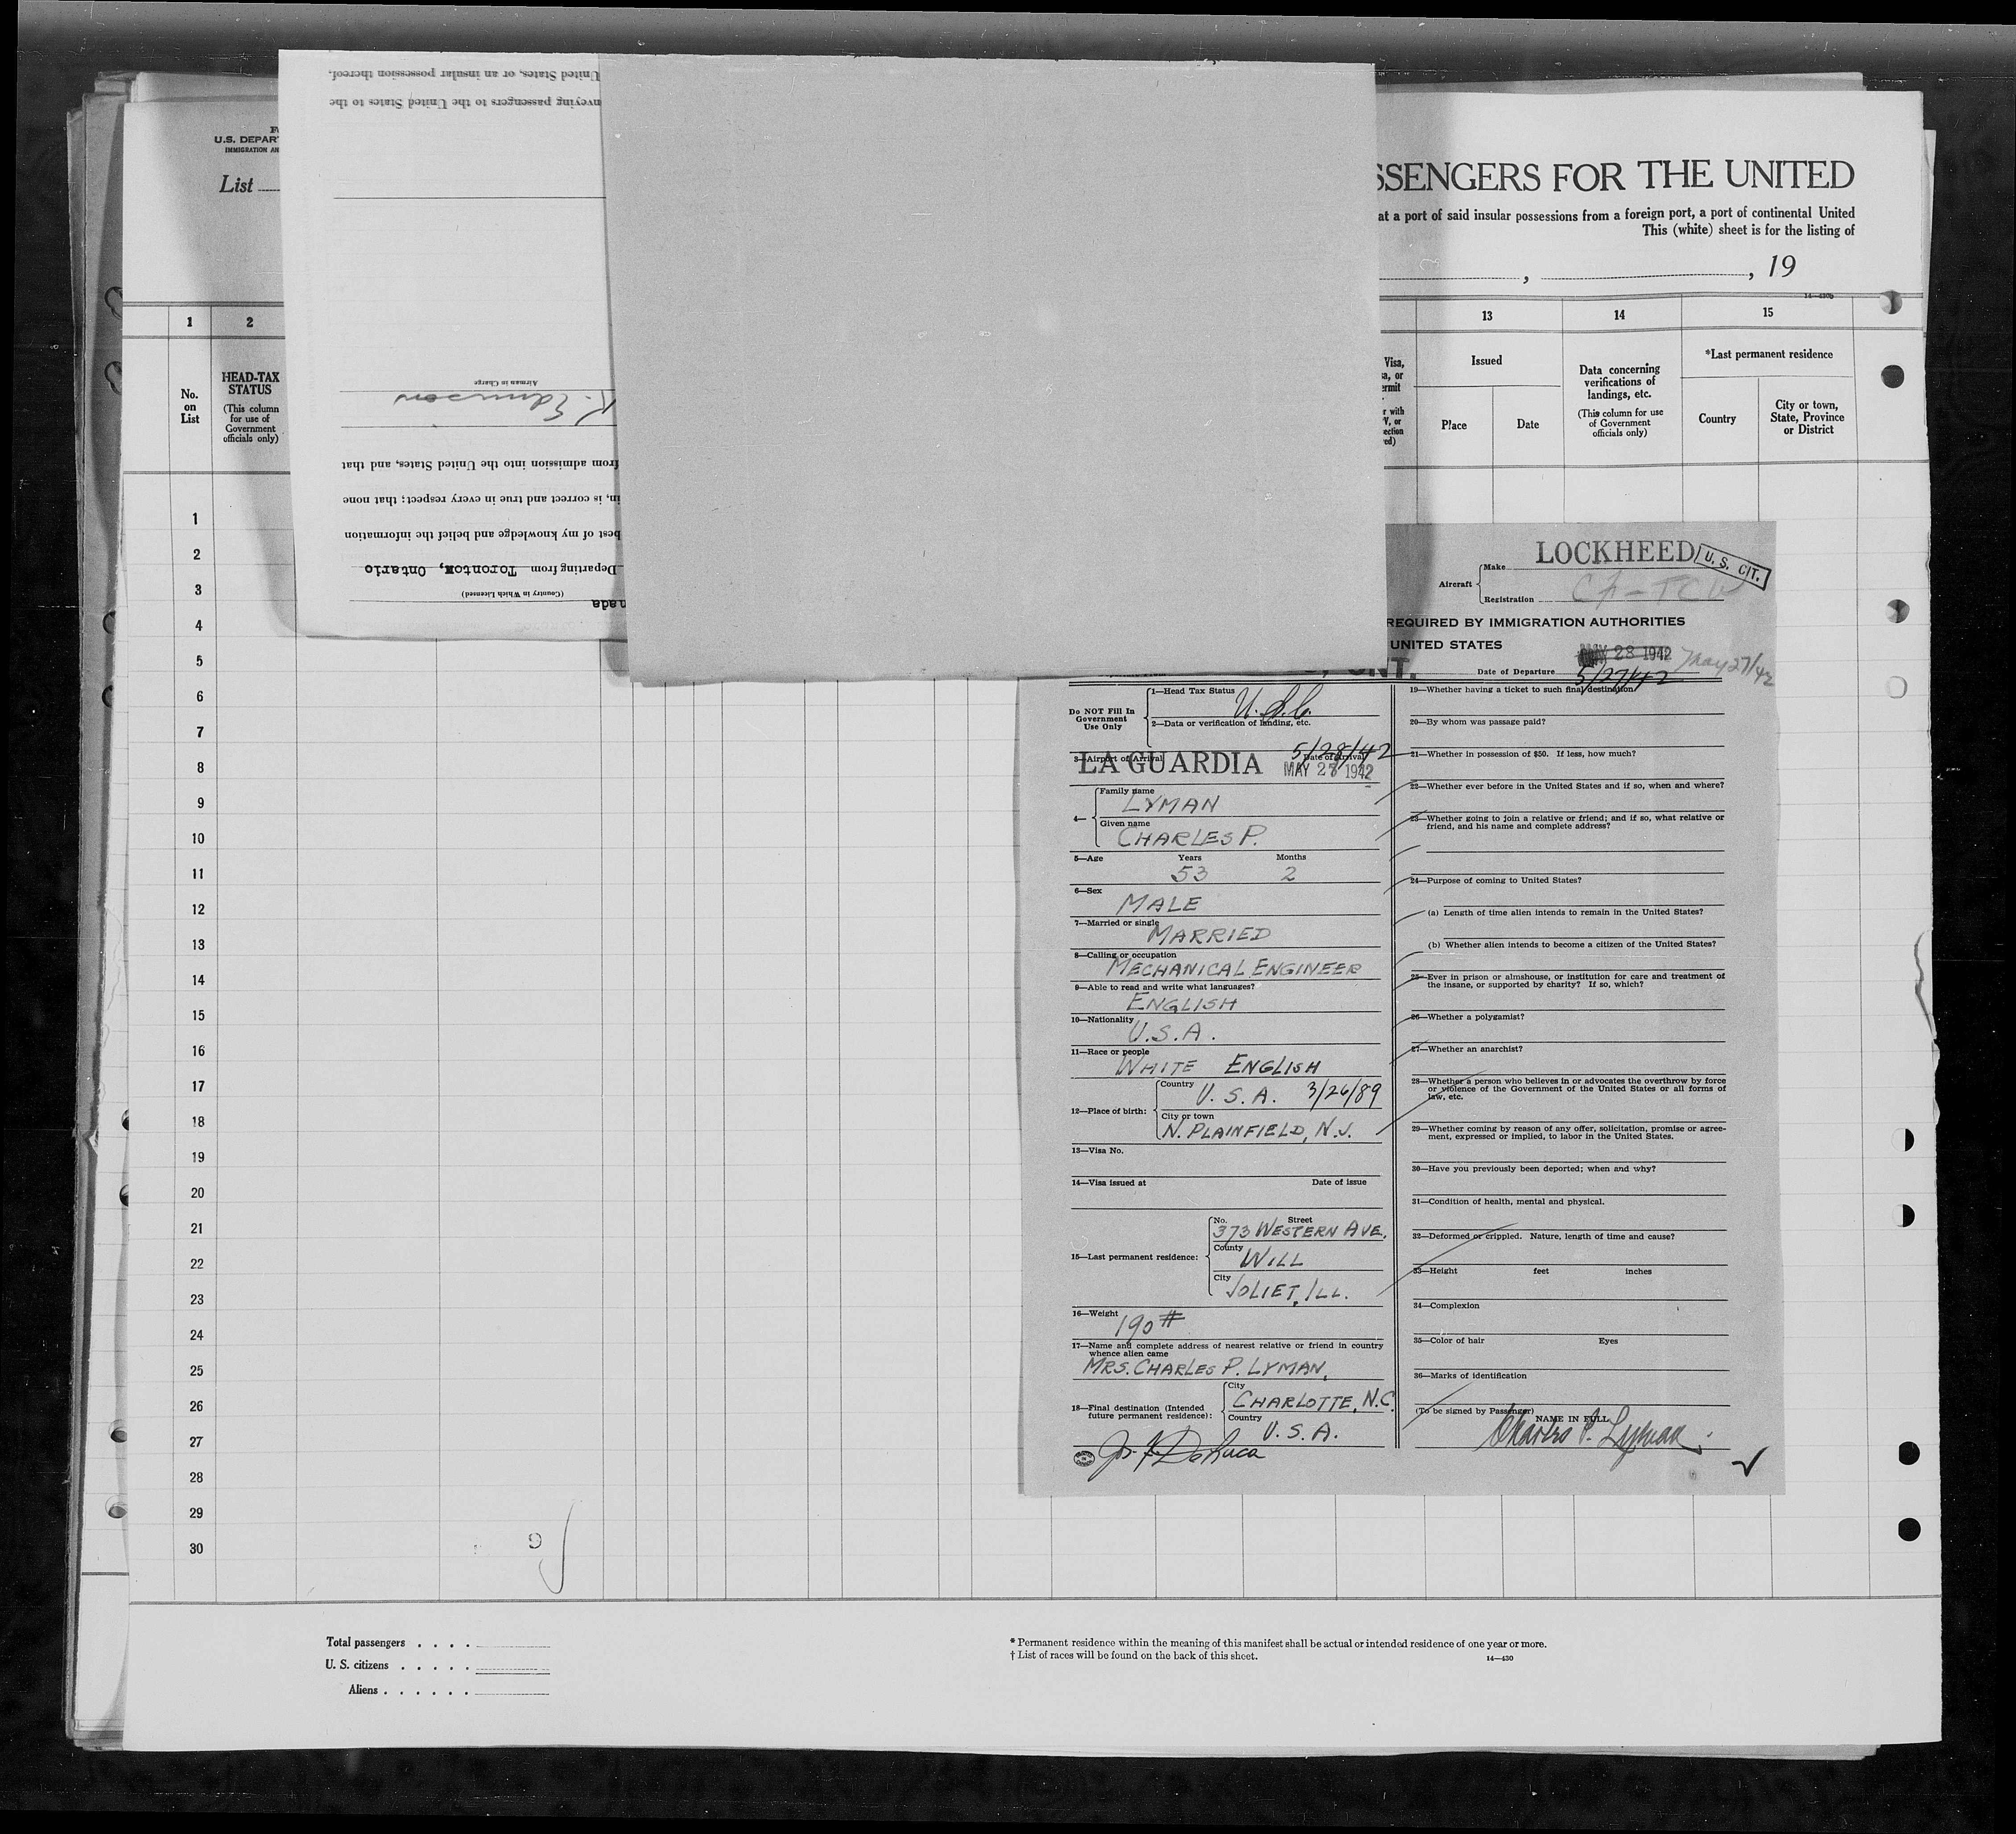 U.S. DEPAR
IMMIGRATION AN
List
United States, or an insular possession thereof,
nveying passengers to the United States to the
Airman in Charge
K. Edmison
from admission into the United States, and that
in, is correct and true in every respect; that none
best of my knowledge and belief the information
Departing from Toronto, Ontario
(Country in Which Licensed)
nada
SSENGERS FOR THE UNITED
at a port of said insular possessions from a foreign port, a port of continental United
This (white) sheet is for the listing of
, , 19
1 2 13 14 15
No. on List
HEAD-TAX STATUS
(This column for use of Government officials only)
Visa,
a, or
ermit
r with
V, or
ection
ed)
Issued
Place Date
Data concerning verifications of landings, etc.
(This column for use of Government officials only)
*Last permanent residence
Country
City or town, State, Province or District
1
2
3
4
5
6
7
8
9
10
11
12
13
14
15
16
17
18
19
20
21
22
23
24
25
26
27
28
29
30
LOCKHEED
U. S. CIT.
Aircraft
Make
Registration CF-TC
REQUIRED BY IMMIGRATION AUTHORITIES
UNITED STATES
MAY 28 1942 May 27/42
, ONT.
Date of Departure 5/27/42
Do NOT Fill In Government Use Only
1—Head Tax Status U.S.C.
2—Data or verification of landing, etc.
5/28/42
3—Airport of Arrival Date of Arrival
LA GUARDIA MAY 28 1942
4—
Family name
LYMAN
Given name
CHARLES P.
5—Age Years Months
53 2
6—Sex
MALE
7—Married or single
MARRIED
8—Calling or occupation
MECHANICAL ENGINEER
9—Able to read and write what languages?
ENGLISH
10—Nationality
U.S.A.
11—Race or people
WHITE ENGLISH
12—Place of birth:
Country
U. S. A. 3/26/89
City or town
N. PLAINFIELD, N.J.
13—Visa No.
14—Visa issued at Date of issue
15—Last permanent residence:
No. Street
373 WESTERN AVE.
County
WILL
City
JOLIET, ILL.
16—Weight
190 #
17—Name and complete address of nearest relative or friend in country
whence alien came
MRS. CHARLES P. LYMAN,
18—Final destination (Intended
future permanent residence):
City
CHARLOTTE, N.C.
Country
U. S. A.
19—Whether having a ticket to such final destination?
20—By whom was passage paid?
21—Whether in possession of $50. If less, how much?
22—Whether ever before in the United States and if so, when and where?
23—Whether going to join a relative or friend; and if so, what relative or
friend, and his name and complete address?
24—Purpose of coming to United States?
(a) Length of time alien intends to remain in the United States?
(b) Whether alien intends to become a citizen of the United States?
25—Ever in prison or almshouse, or institution for care and treatment of
the insane, or supported by charity? If so, which?
26—Whether a polygamist?
27—Whether an anarchist?
28—Whether a person who believes in or advocates the overthrow by force
or violence of the Government of the United States or all forms of
law, etc.
29—Whether coming by reason of any offer, solicitation, promise or agree-
ment, expressed or implied, to labor in the United States.
30—Have you previously been deported; when and why?
31—Condition of health, mental and physical.
32—Deformed or crippled. Nature, length of time and cause?
33—Height feet inches
34—Complexion
35—Color of hair Eyes
36—Marks of identification
(To be signed by Passenger)
NAME IN FULL
Charles P. Lyman
Total passengers . . . .
U. S. citizens . . . . .
Aliens . . . . . .
* Permanent residence within the meaning of this manifest shall be actual or intended residence of one year or more.
† List of races will be found on the back of this sheet.
14—430